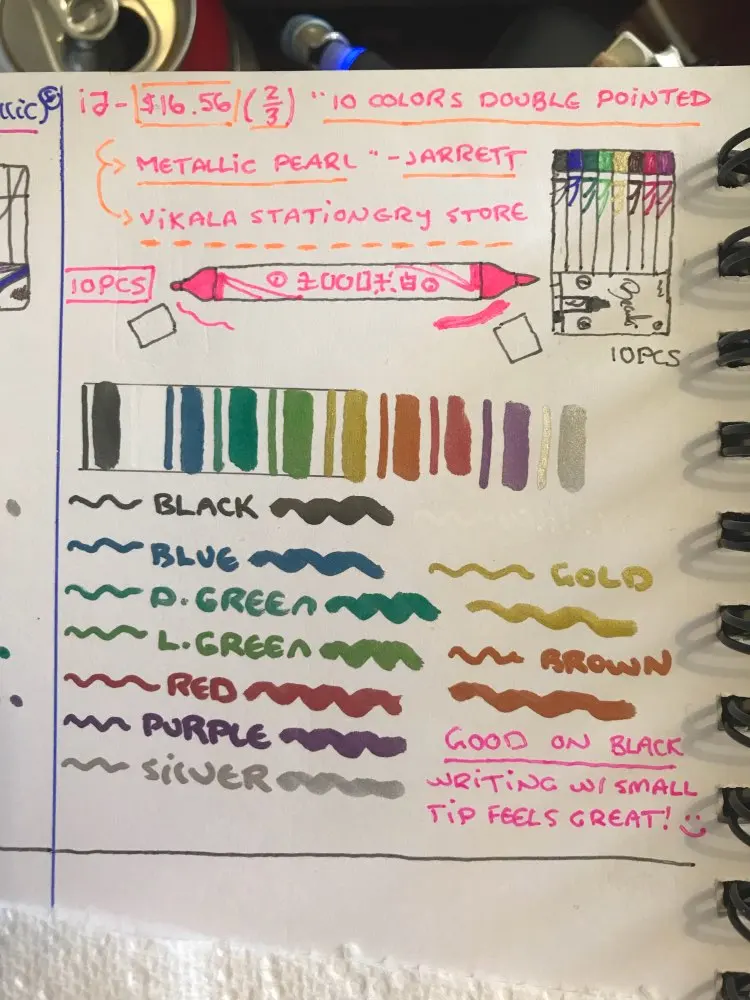 llic)
id - $16.56 (2/3) "10 COLORS DOUBLE POINTED
METALLIC PEARL" - JARRETT
VIKALA STATIONERY STORE
10PCS
10PCS
BLACK
BLUE
GOLD
D. GREEN
L. GREEN
BROWN
RED
PURPLE
SILVER
GOOD ON BLACK
WRITING W/ SMALL
TIP FEELS GREAT! :)